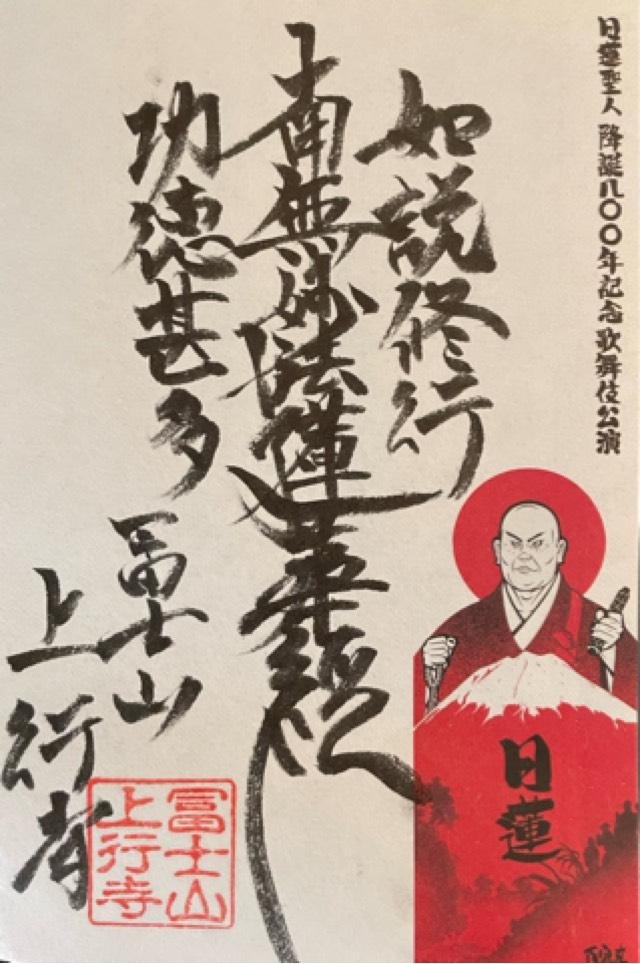 日蓮聖人 降誕八〇〇年記念歌舞伎公演
如説修行
南無妙法蓮華経
功徳甚多
冨士山
上行寺
冨士山
上行寺
日蓮